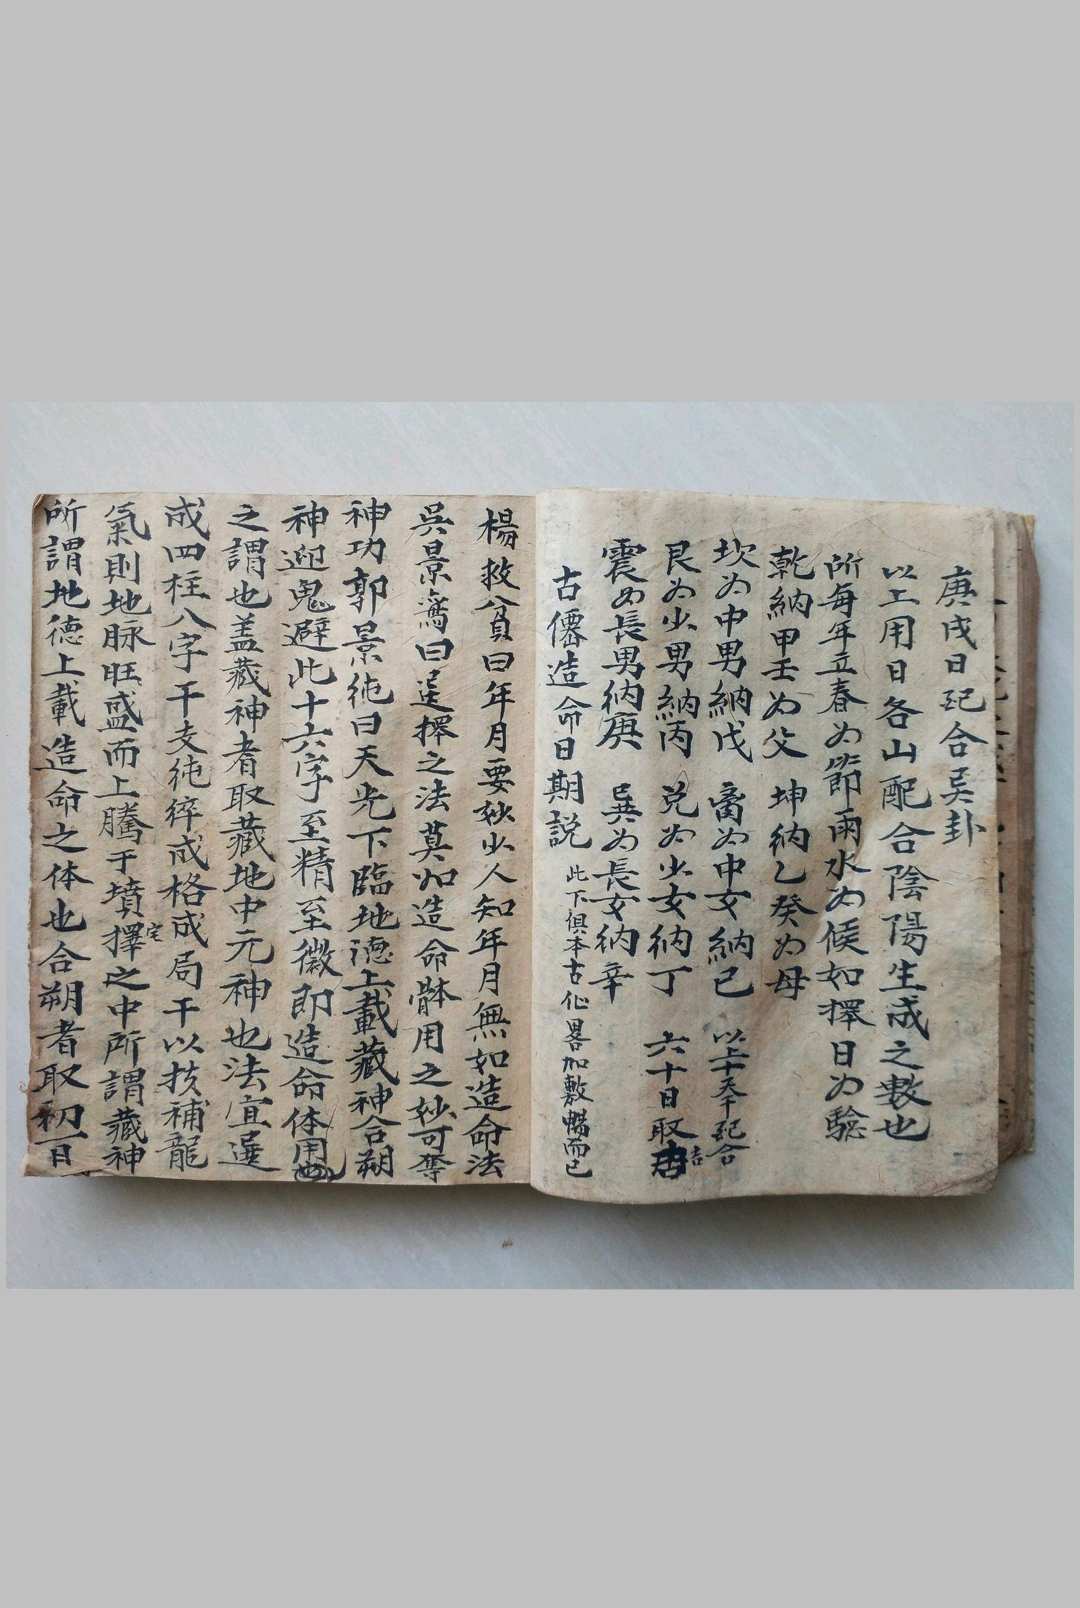 庚戌日配合吴卦
以上用日各山配合陰陽生成之數也
所每年立春为節雨水为候如擇日为驗
乾納甲壬为父 坤納乙癸为母
坎为中男納戊 离为中女納己 以上十天干配合
艮为少男納丙 兑为少女納丁 六十日取吉
震为長男納庚 巽为長女納辛
古僊造命日期説 此下俱本古仩畧加敷暢而已
楊救貧曰年月要妙少人知年月無如造命法
吳景鸞曰選擇之法莫如造命體用之妙可奪
神功郭景纯曰天光下臨地德上載藏神合朔
神迎鬼避此十六字至精至微即造命体用也
之謂也盖藏神者取藏地中元神也法宜選
成四柱八字干支纯粹成格成局干以扶補龍
氣則地脉旺盛而上騰于墳宅擇之中所謂藏神
所謂地德上載造命之体也合朔者取初一日